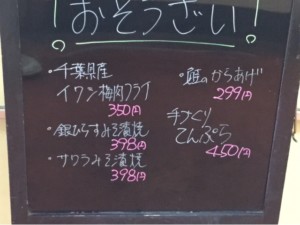 おそうざい!
・千葉県産
イワシ梅肉フライ
350円
・銀ひらすみそ漬焼
398円
・サワラみそ漬焼
398円
・鮭のからあげ
299円
手づくり
てんぷら
450円